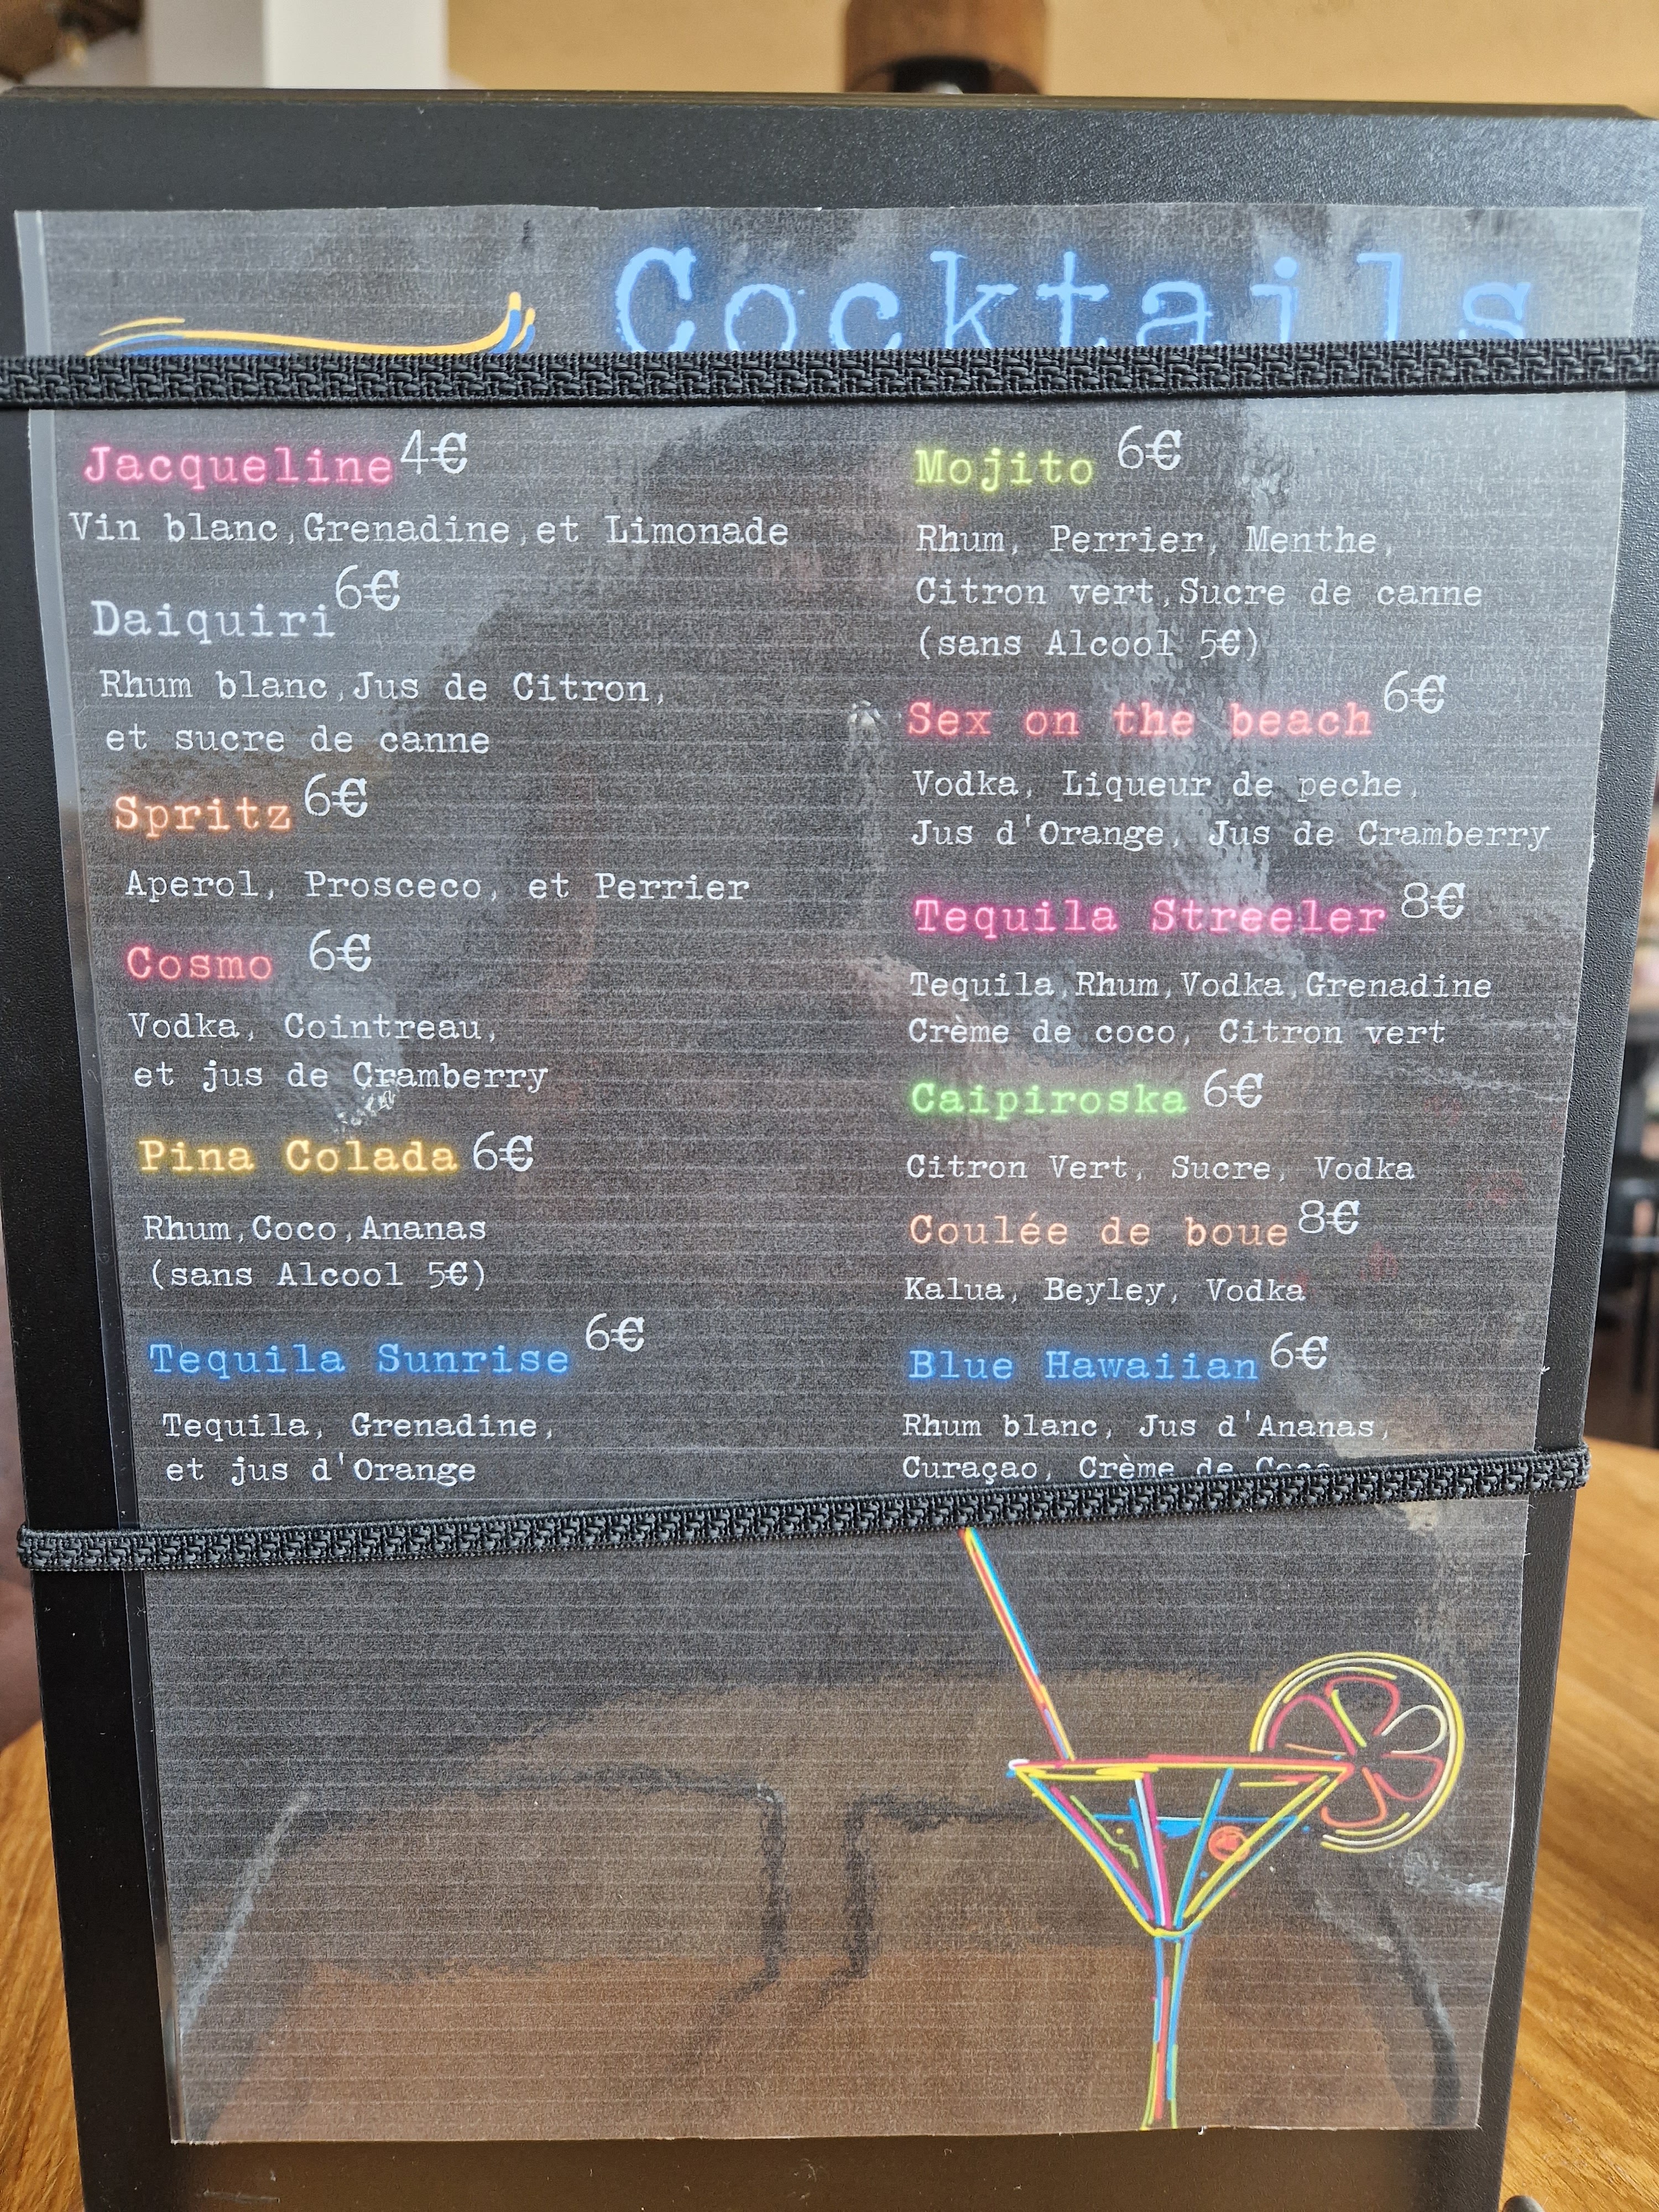 Cocktails
Jacqueline 4€
Vin blanc,Grenadine,et Limonade
Daiquiri 6€
Rhum blanc,Jus de Citron,
et sucre de canne
Spritz 6€
Aperol, Prosceco, et Perrier
Cosmo 6€
Vodka, Cointreau,
et jus de Cramberry
Pina Colada 6€
Rhum,Coco,Ananas
(sans Alcool 5€)
Tequila Sunrise 6€
Tequila, Grenadine,
et jus d'Orange
Mojito 6€
Rhum, Perrier, Menthe,
Citron vert,Sucre de canne
(sans Alcool 5€)
Sex on the beach 6€
Vodka, Liqueur de peche,
Jus d'Orange, Jus de Cramberry
Tequila Streeler 8€
Tequila,Rhum,Vodka,Grenadine
Crème de coco, Citron vert
Caipiroska 6€
Citron Vert, Sucre, Vodka
Coulée de boue 8€
Kalua, Beyley, Vodka
Blue Hawaiian 6€
Rhum blanc, Jus d'Ananas,
Curaçao, Crème de Coco